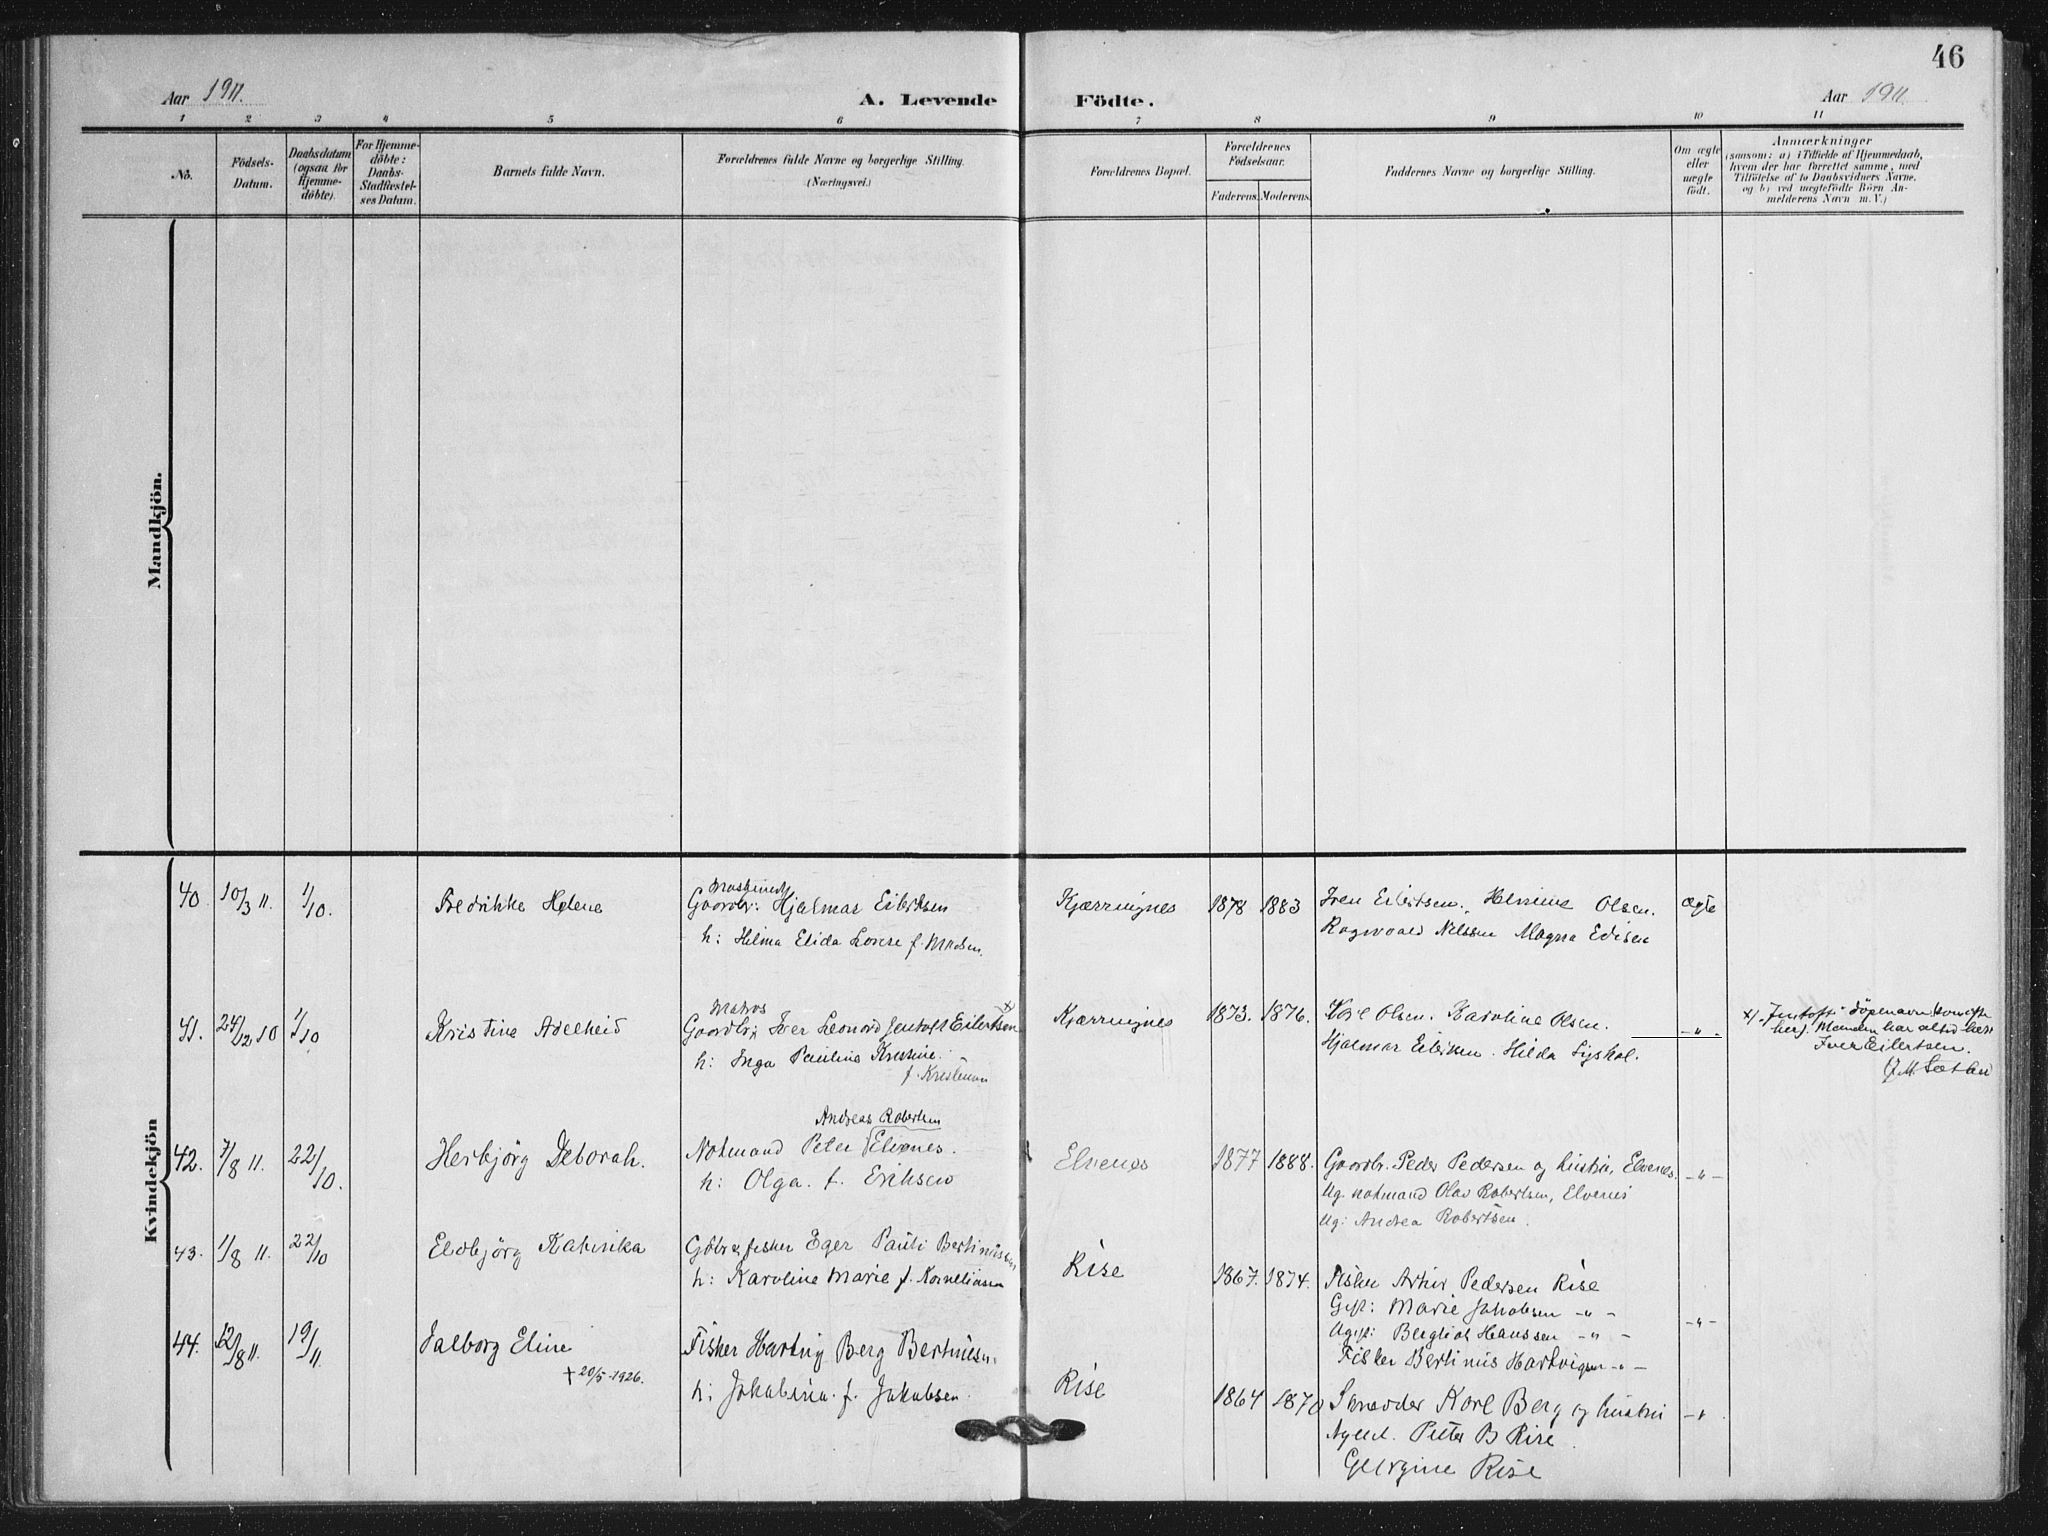 46
Aar 1911.
A. Levende Födte.
Aar 1911.
1 2 3 4 5 6 7 8 9 10 11
No.
Födsels-
Datum.
Daabsdatum
(ogsaa for
Hjemme-
döbte).
For Hjemme-
döbte:
Daabs-
Stadfæstel-
ses Datum.
Barnets fulde Navn.
Forældrenes fulde Navne og borgerlige Stilling.
(Næringsvei.)
Forældrenes Bopæl.
Forældrenes
Födselsaar.
Faderens. Moderens.
Faddernes Navne og borgerlige Stilling.
Om ægte
eller
uægte
födt.
Anmærkninger
(saasom: a) i Tilfælde af Hjemmedaab,
hvem der har forrettet samme, med
Tilföielse af to Daabsvidners Navne,
og b) ved uegtefödte Börn An-
melderens Navn m. V.)
Mandkjön.
Kvindekjön
40. 10/3 11. 1/10. Fredrikke Helene
Gaardbr: Hjalmar Eilertsen
h: Helma Elida Lovise f. Madsen.
Kjærringnes 1878 1883
Iver Eilertsen. Helmine Olsen.
Ragnvald Nilssen Magna Edisen
ægte
41. 24/12 10 1/10 Kristine Adelheid
Matros
Gaardbr. Iver Leonard Jentoft Eilertsen x
h: Inga Pauline Kristine
f. Kristensen
Kjærringnes 1873. 1876.
Karl Olsen. Karoline Olsen.
Hjalmar Eilertsen. Hilda
-"-
x). Jentoft
Iver Eilertsen.
42. 7/8 11. 22/10. Herbjörg Deborah.
Andreas Robertsen
Notmand Peter Elvenes.
h: Olga f. Eriksen
Elvenes 1877 1888.
Gaardbr. Peder Pedersen og hustru, Elvenes.
Ug. notmand Olav Robertsen, Elvenes
Ug: Andrea Robertsen.
-"-
43. 1/8 11. 22/10 Eldbjörg Katinka
Gbr & fisker Eger Pauli Bertinussen
h: Karoline Marie f. Korneliussen
Rise 1867. 1874.
Fisker Artur Pedersen Rise
Gift: Marie Jakobsen -"-
Ugift: Bergliot Hanssen -"-
Fisker Bertinus Hartvigsen -"-
-"-
44. 12/8 11. 19/11. Valborg Eline
+ 20/5-1926.
Fisker Hartvig Berg Bertinusen.
h: Jakobina f. Jakobsen.
Rise 1864 1870
Skrædder Karl Berg og hustru
Peter B Rise.
Georgine Rise
-"-